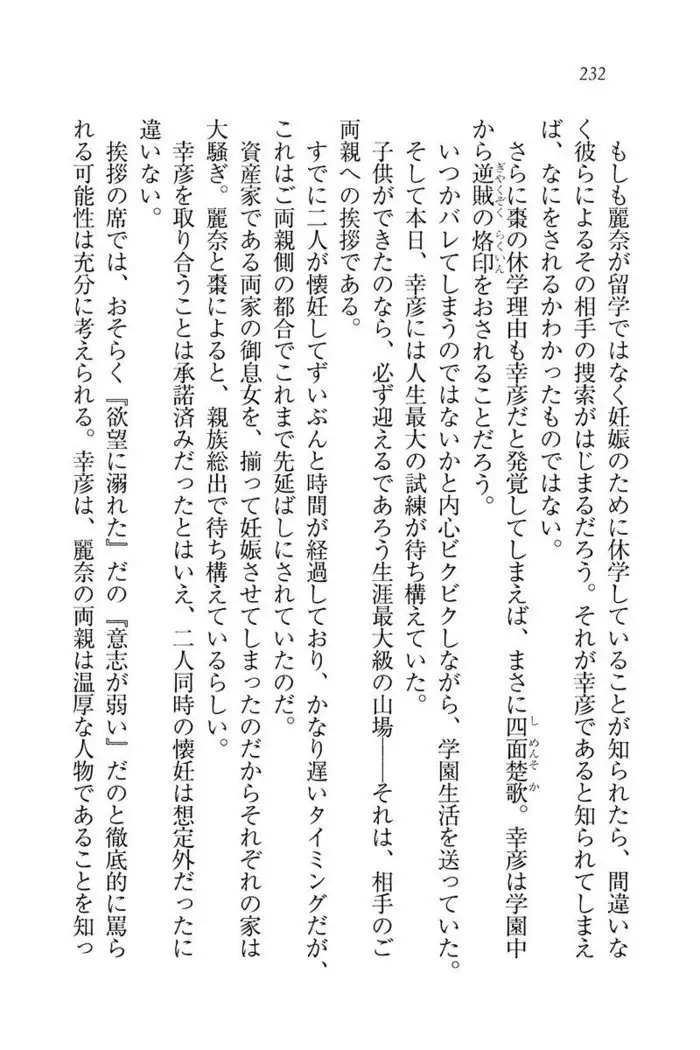 232
もしも麗奈が留学ではなく妊娠のために休学していることが知られたら、間違いな
く彼らによるその相手の捜索がはじまるだろう。それが幸彦であると知られてしまえ
ば、なにをされるかわかったものではない。
さらに棗の休学理由も幸彦だと発覚してしまえば、まさに四面楚歌。幸彦は学園中
から逆賊の烙印をおされることだろう。
いつかバレてしまうのではないかと内心ビクビクしながら、学園生活を送っていた。
そして本日、幸彦には人生最大の試練が待ち構えていた。
子供ができたのなら、必ず迎えるであろう生涯最大級の山場――それは、相手のご
両親への挨拶である。
すでに二人が懐妊してずいぶんと時間が経過しており、かなり遅いタイミングだが、
これはご両親側の都合でこれまで先延ばしにされていたのだ。
資産家である両家の御息女を、揃って妊娠させてしまったのだからそれぞれの家は
大騒ぎ。麗奈と棗によると、親族総出で待ち構えているらしい。
幸彦を取り合うことは承諾済みだったとはいえ、二人同時の懐妊は想定外だったに
違いない。
挨拶の席では、おそらく『欲望に溺れた』だの『意志が弱い』だのと徹底的に罵ら
れる可能性は充分に考えられる。幸彦は、麗奈の両親は温厚な人物であることを知っ